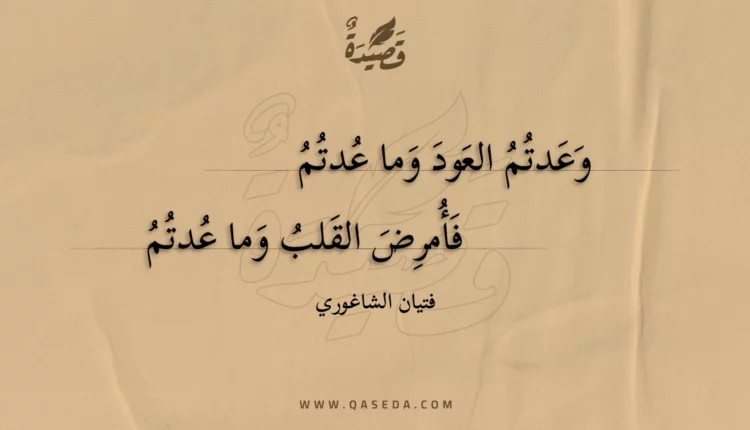 قَصِيدَةٌ
وَعَدتُمُ العَودَ وَما عُدتُمُ
فَأُمرِضَ القَلبُ وَما عُدتُمُ
فتيان الشاغوري
WWW.QASEDA.COM